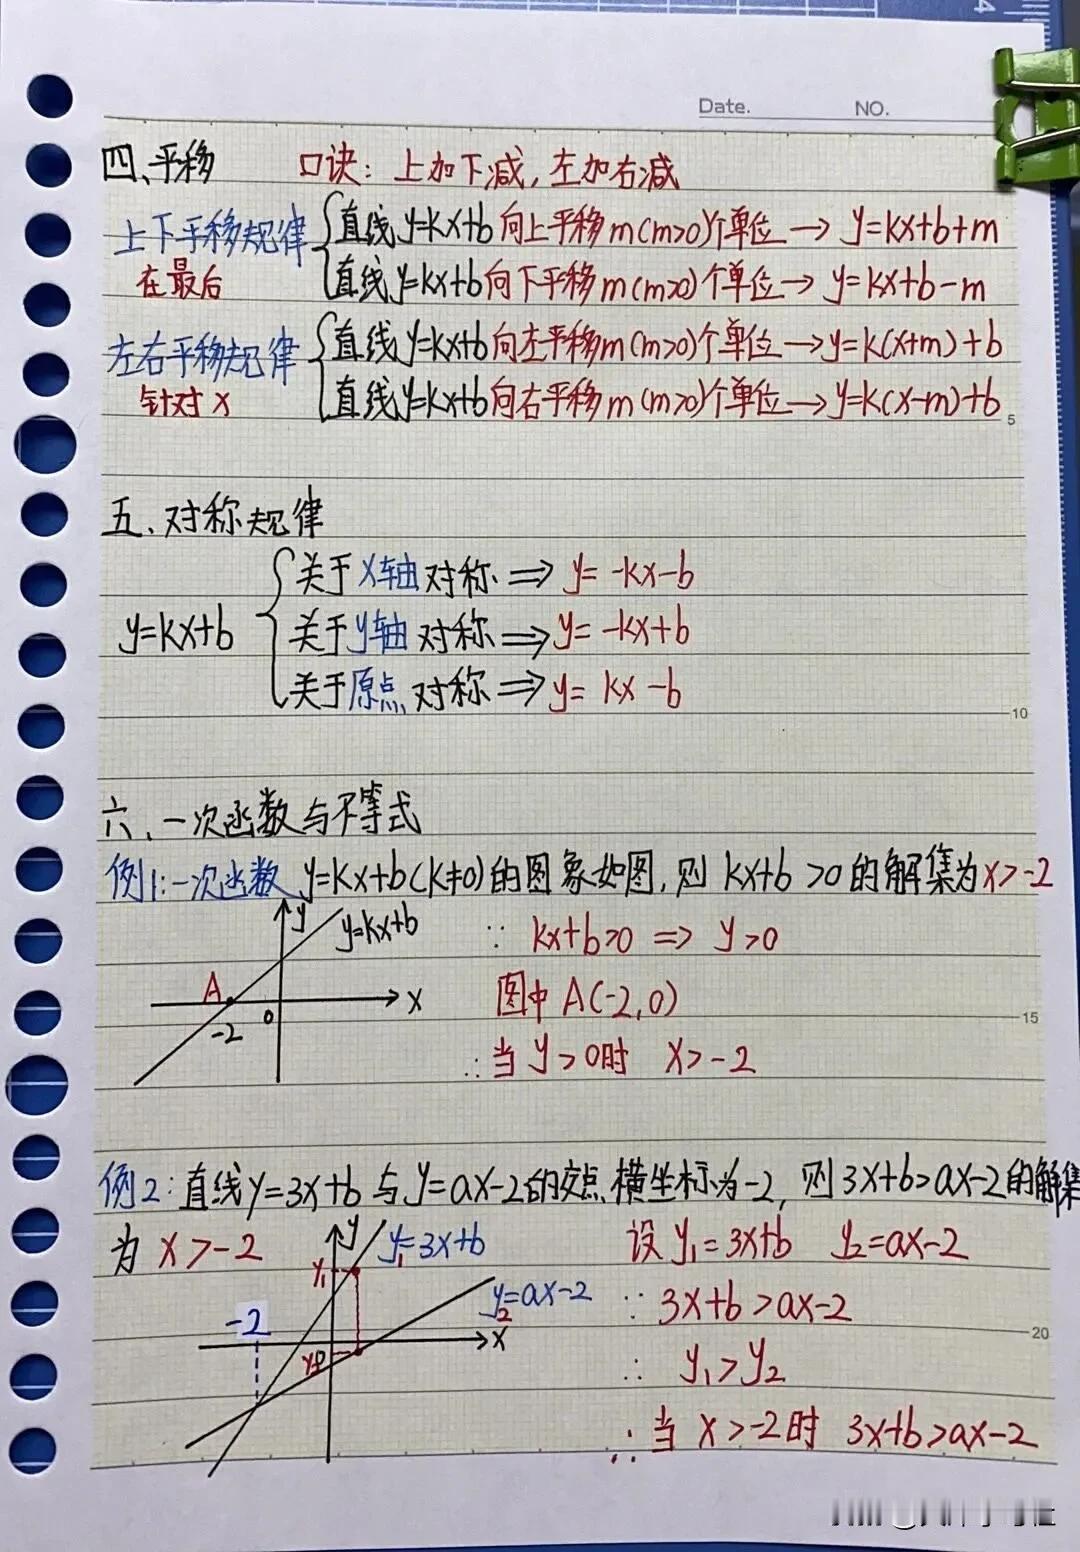 Date. NO.
四、平移 口诀：上加下减，左加右减
上下平移规律 直线y=kx+b向上平移m(m>0)个单位→y=kx+b+m
在最后 直线y=kx+b向下平移m(m>0)个单位→y=kx+b-m
左右平移规律 直线y=kx+b向左平移m(m>0)个单位→y=k(x+m)+b
针对x 直线y=kx+b向右平移m(m>0)个单位→y=k(x-m)+b
5
五、对称规律
关于x轴对称⇒y=-kx-b
y=kx+b 关于y轴对称⇒y=-kx+b
关于原点对称⇒y=kx-b
10
六、一次函数与不等式
例1:一次函数y=kx+b(k≠0)的图象如图,则kx+b>0的解集为x>-2
y y=kx+b ∵ kx+b>0 ⇒ y>0
A x 图中A(-2,0)
-2 0 15
∴当y>0时 x>-2
例2:直线y=3x+b与y=ax-2的交点横坐标为-2,则3x+b>ax-2的解集
为 x>-2 y y₁=3x+b 设y₁=3x+b y₂=ax-2
y₁ y₂=ax-2 ∵ 3x+b>ax-2
-2 x 20
y₂ ∴ y₁>y₂
∴当x>-2时 3x+b>ax-2